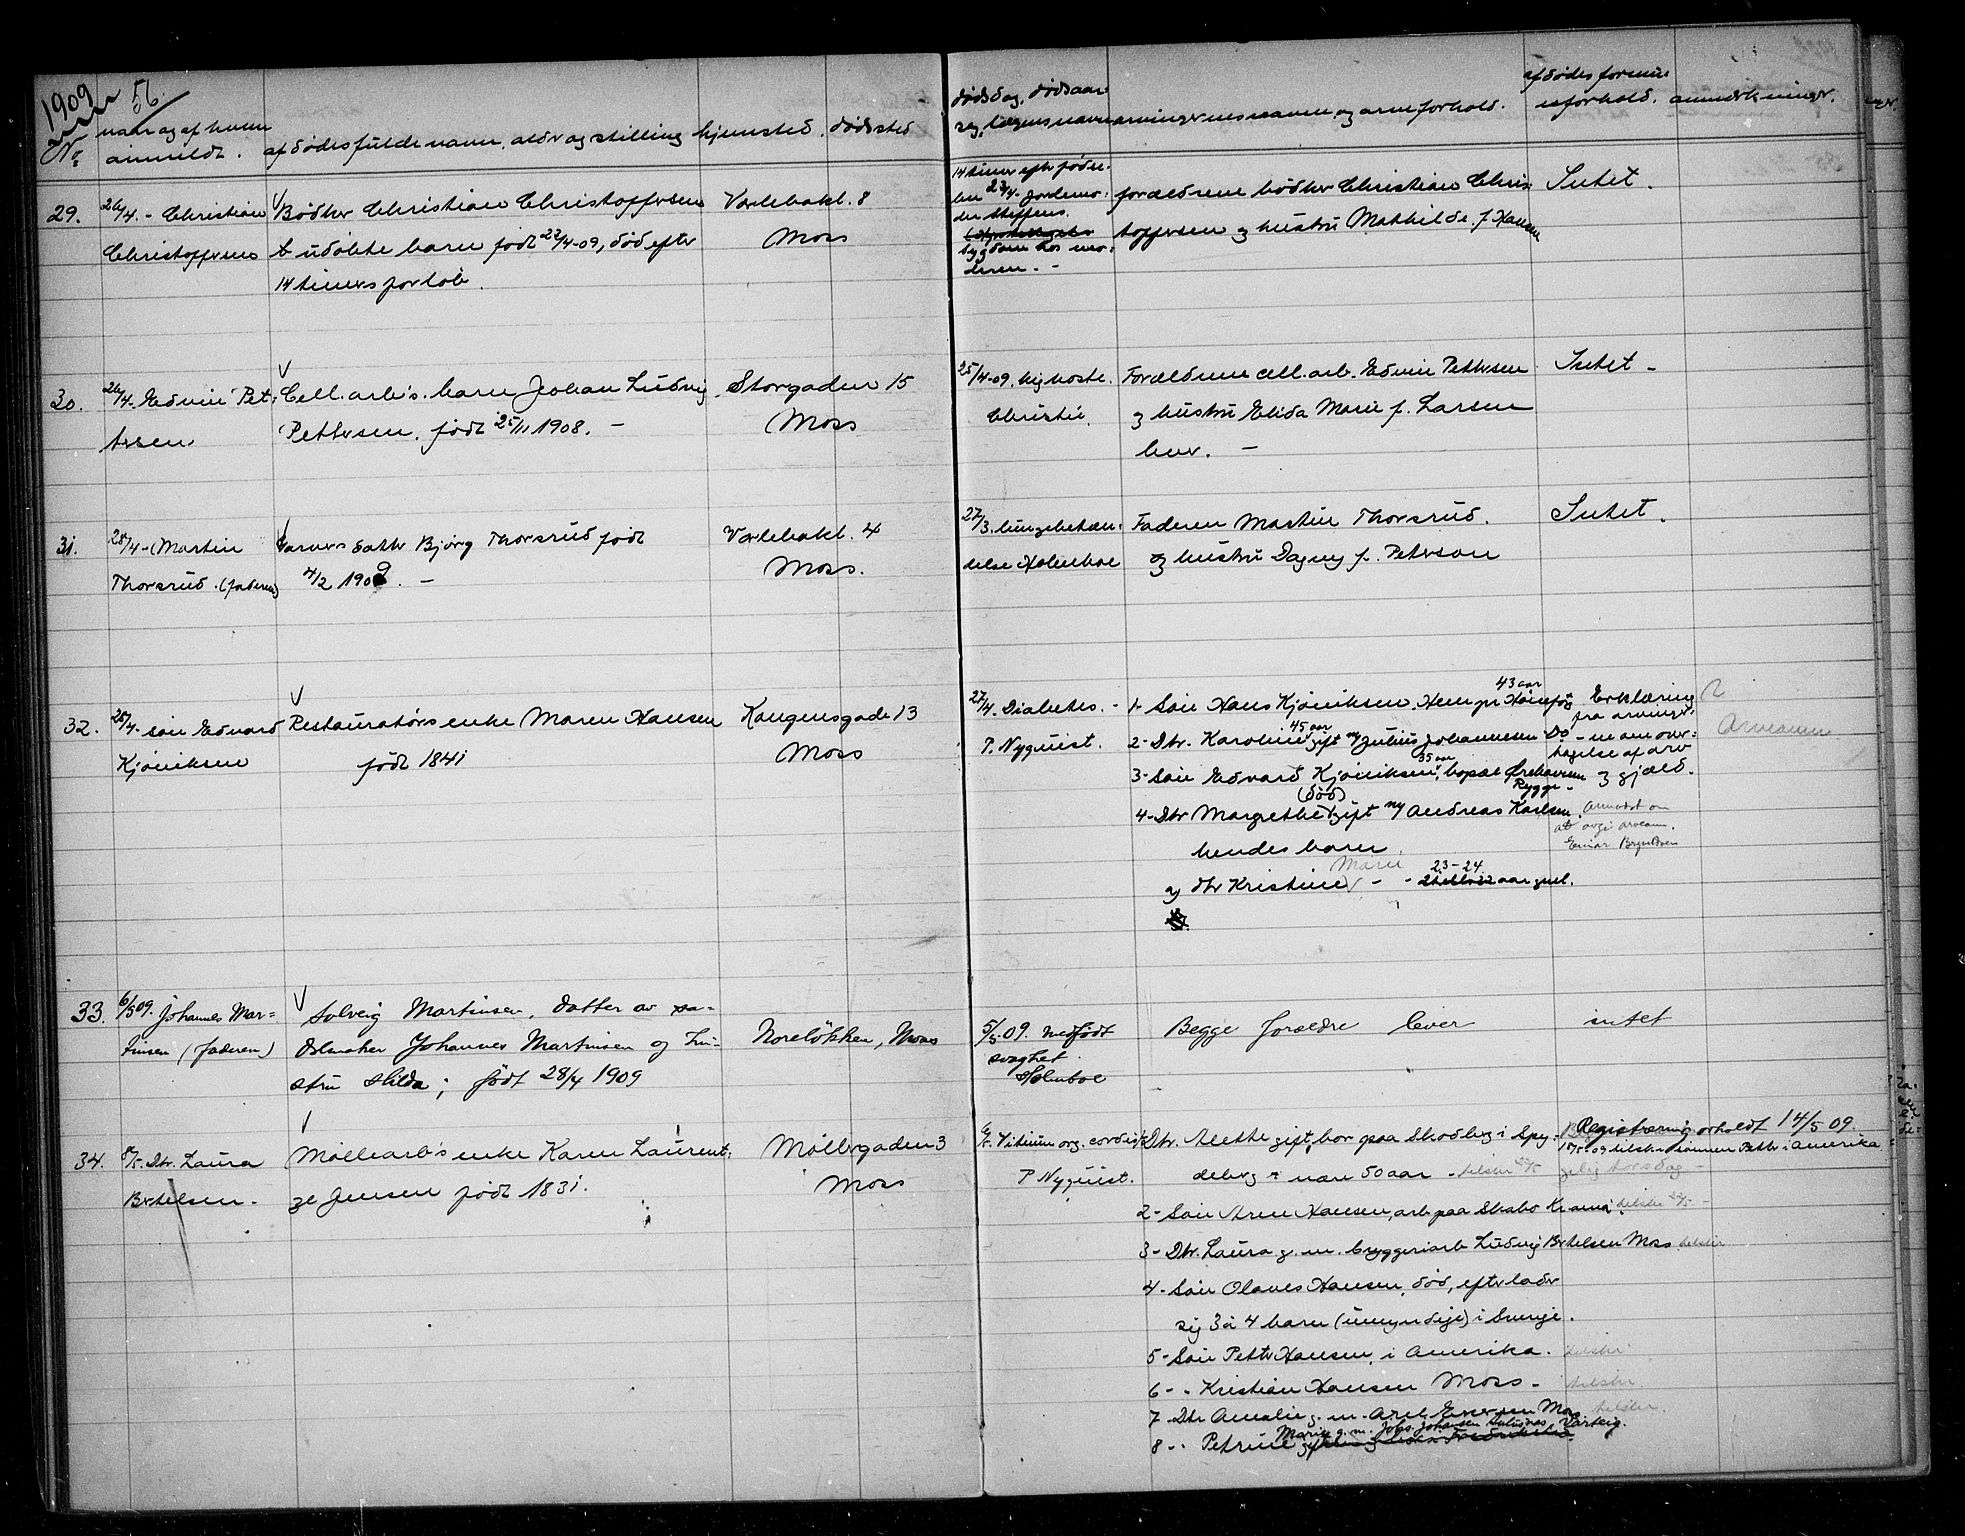 1909
56.
No
naar og af hvem
anmeldt.
afdødes fulde navn, alder og stilling
hjemsted.
dødssted
dødsdag, dødsaar
sag, lægens navn
arvingernes navn og arveforhold.
afdødes formu-
esforhold.
anmærkninger.
29.
26/4. - Christian
Christoffersen
Bødker Christian Christoffersens
udøbte barn født 23/4-09, død efter
14 timers forløb.
Varlebakl. 8
Moss
14 timer efter fødse-
len 23/4. Jordemo-
der Steffens.
sygdom hos mo-
deren. -
forældrene bødker Christian Chris-
toffersen og hustru Mathilde f. Hansen
Intet.
30.
26/4. Edvin Pet-
tersen.
Cell. arb's. barn Johan Ludvig
Pettersen, født 25/11 1908. -
Storgaden 15
Moss
25/4-09. kighoste.
Christie.
Forældrene cell. arb. Edvin Pettersen
og hustru Elida Marie f. Larsen
lever. -
Intet -
31.
28/4 - Martin
Thorsrud. (faderen)
Garvers datter Bjørg Thorsrud født
4/2 1909. -
Varlebakl. 4
Moss.
27/3. lungebetæn-
delse Holmboe
Faderen Martin Thorsrud.
og hustru Dagny f. Peterson
Intet.
32.
28/4. søn Edvard
Kjøniksen
Restauratørs enke Maren Hansen
født 1841
Kongensgade 13
Moss
27/4. Diabetes. -
P. Nyquist.
43 aar
1- Søn Hans Kjøniksen. Hem pr Hønefos
45 aar
2- Dtr. Karoline gift m/ Julius Johannesen Do -
35 aar
3- Søn Edvard Kjøniksen, bopæl Ørehavnen
Rygge -
(død)
4- Dtr Margrethe gift m/ Andreas Karlsen.
hendes barn.
Maren
23-24
og dtr Kristine - - aar gml.
Erklæring
fra arvinger-
ne om over-
tagelse af arv
og gjæld.
Anmodet om
at avgi arveanm.
Einar Bryndsen
Arveanm
33.
6/5 09. Johannes Mar-
tinsen (faderen)
Solveig Martinsen, datter av sa-
delmaker Johannes Martinsen og hu-
stru Hilda; født 28/4 1909
Noreløkken, Moss
5/5.09. Medfødt
svaghet.
Holmboe
Begge forældre lever
intet
34.
8/5. Dtr. Laura
Bertelsen -
Møllearb's enke Karen Laurent-
ze Jensen født 1831.
Møllergaden 3
Moss
6/5. Vitium org. cordis
P Nyquist.
1- Dtr. Alethe gift, bor paa Skodberg i Spy-
deberg - nær 50 aar - tilskr
2- Søn Aren Hansen, arb paa Skabo Kr.ania. tilskr
3- Dtr. Laura g. m. bryggeriarb Ludvig Bertelsen Moss tilskr
4- Søn Olaves Hansen, død, efterlader
sig 3 à 4 barn (umyndige) i Sverige.
5- Søn Petter Hansen, i Amerika. tilskr
6- - Kristian Hansen Moss - tilskr
7- Dtr Amalie g. m. Axel Eversen Moss tilskr.
Marie g. m. Johs. Johansen Varteig.
8- - Petrine
Registrering avholdt 14/5 09.
15/5-09 tilskr sønnen Petter i Amerika